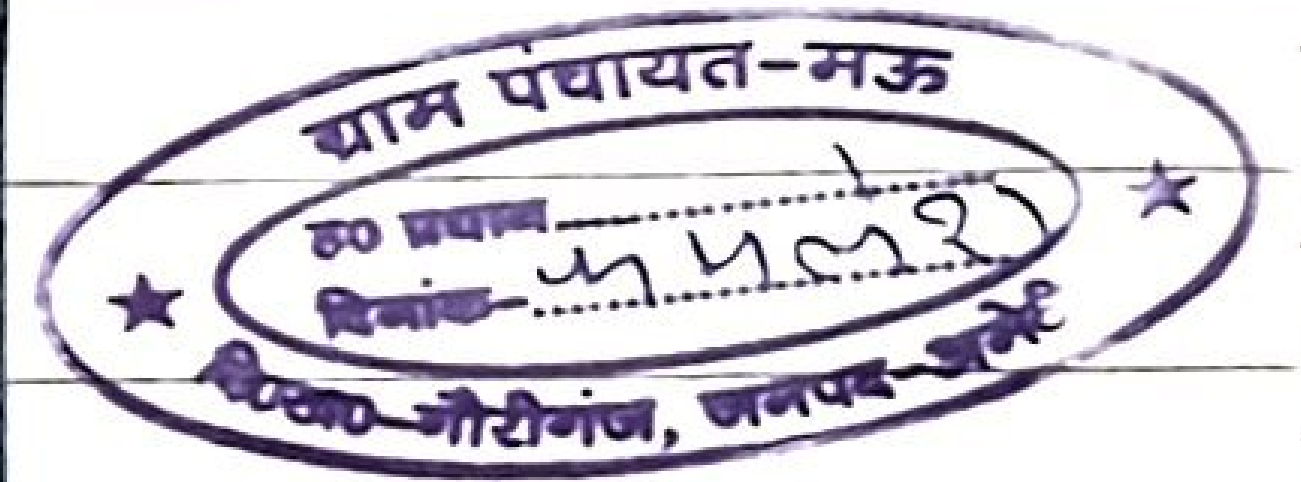 ग्राम पंचायत-मऊ
ह0 प्रधान
दिनांक-
वि0ख0-गौरीगंज, जनपद-अमेठी